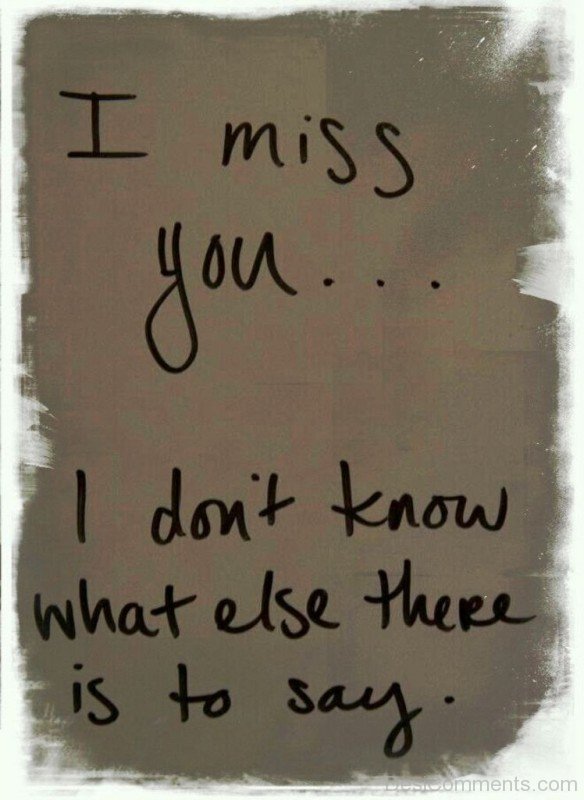 I miss
you...
I don't know
what else there
is to say.
DesiComments.com